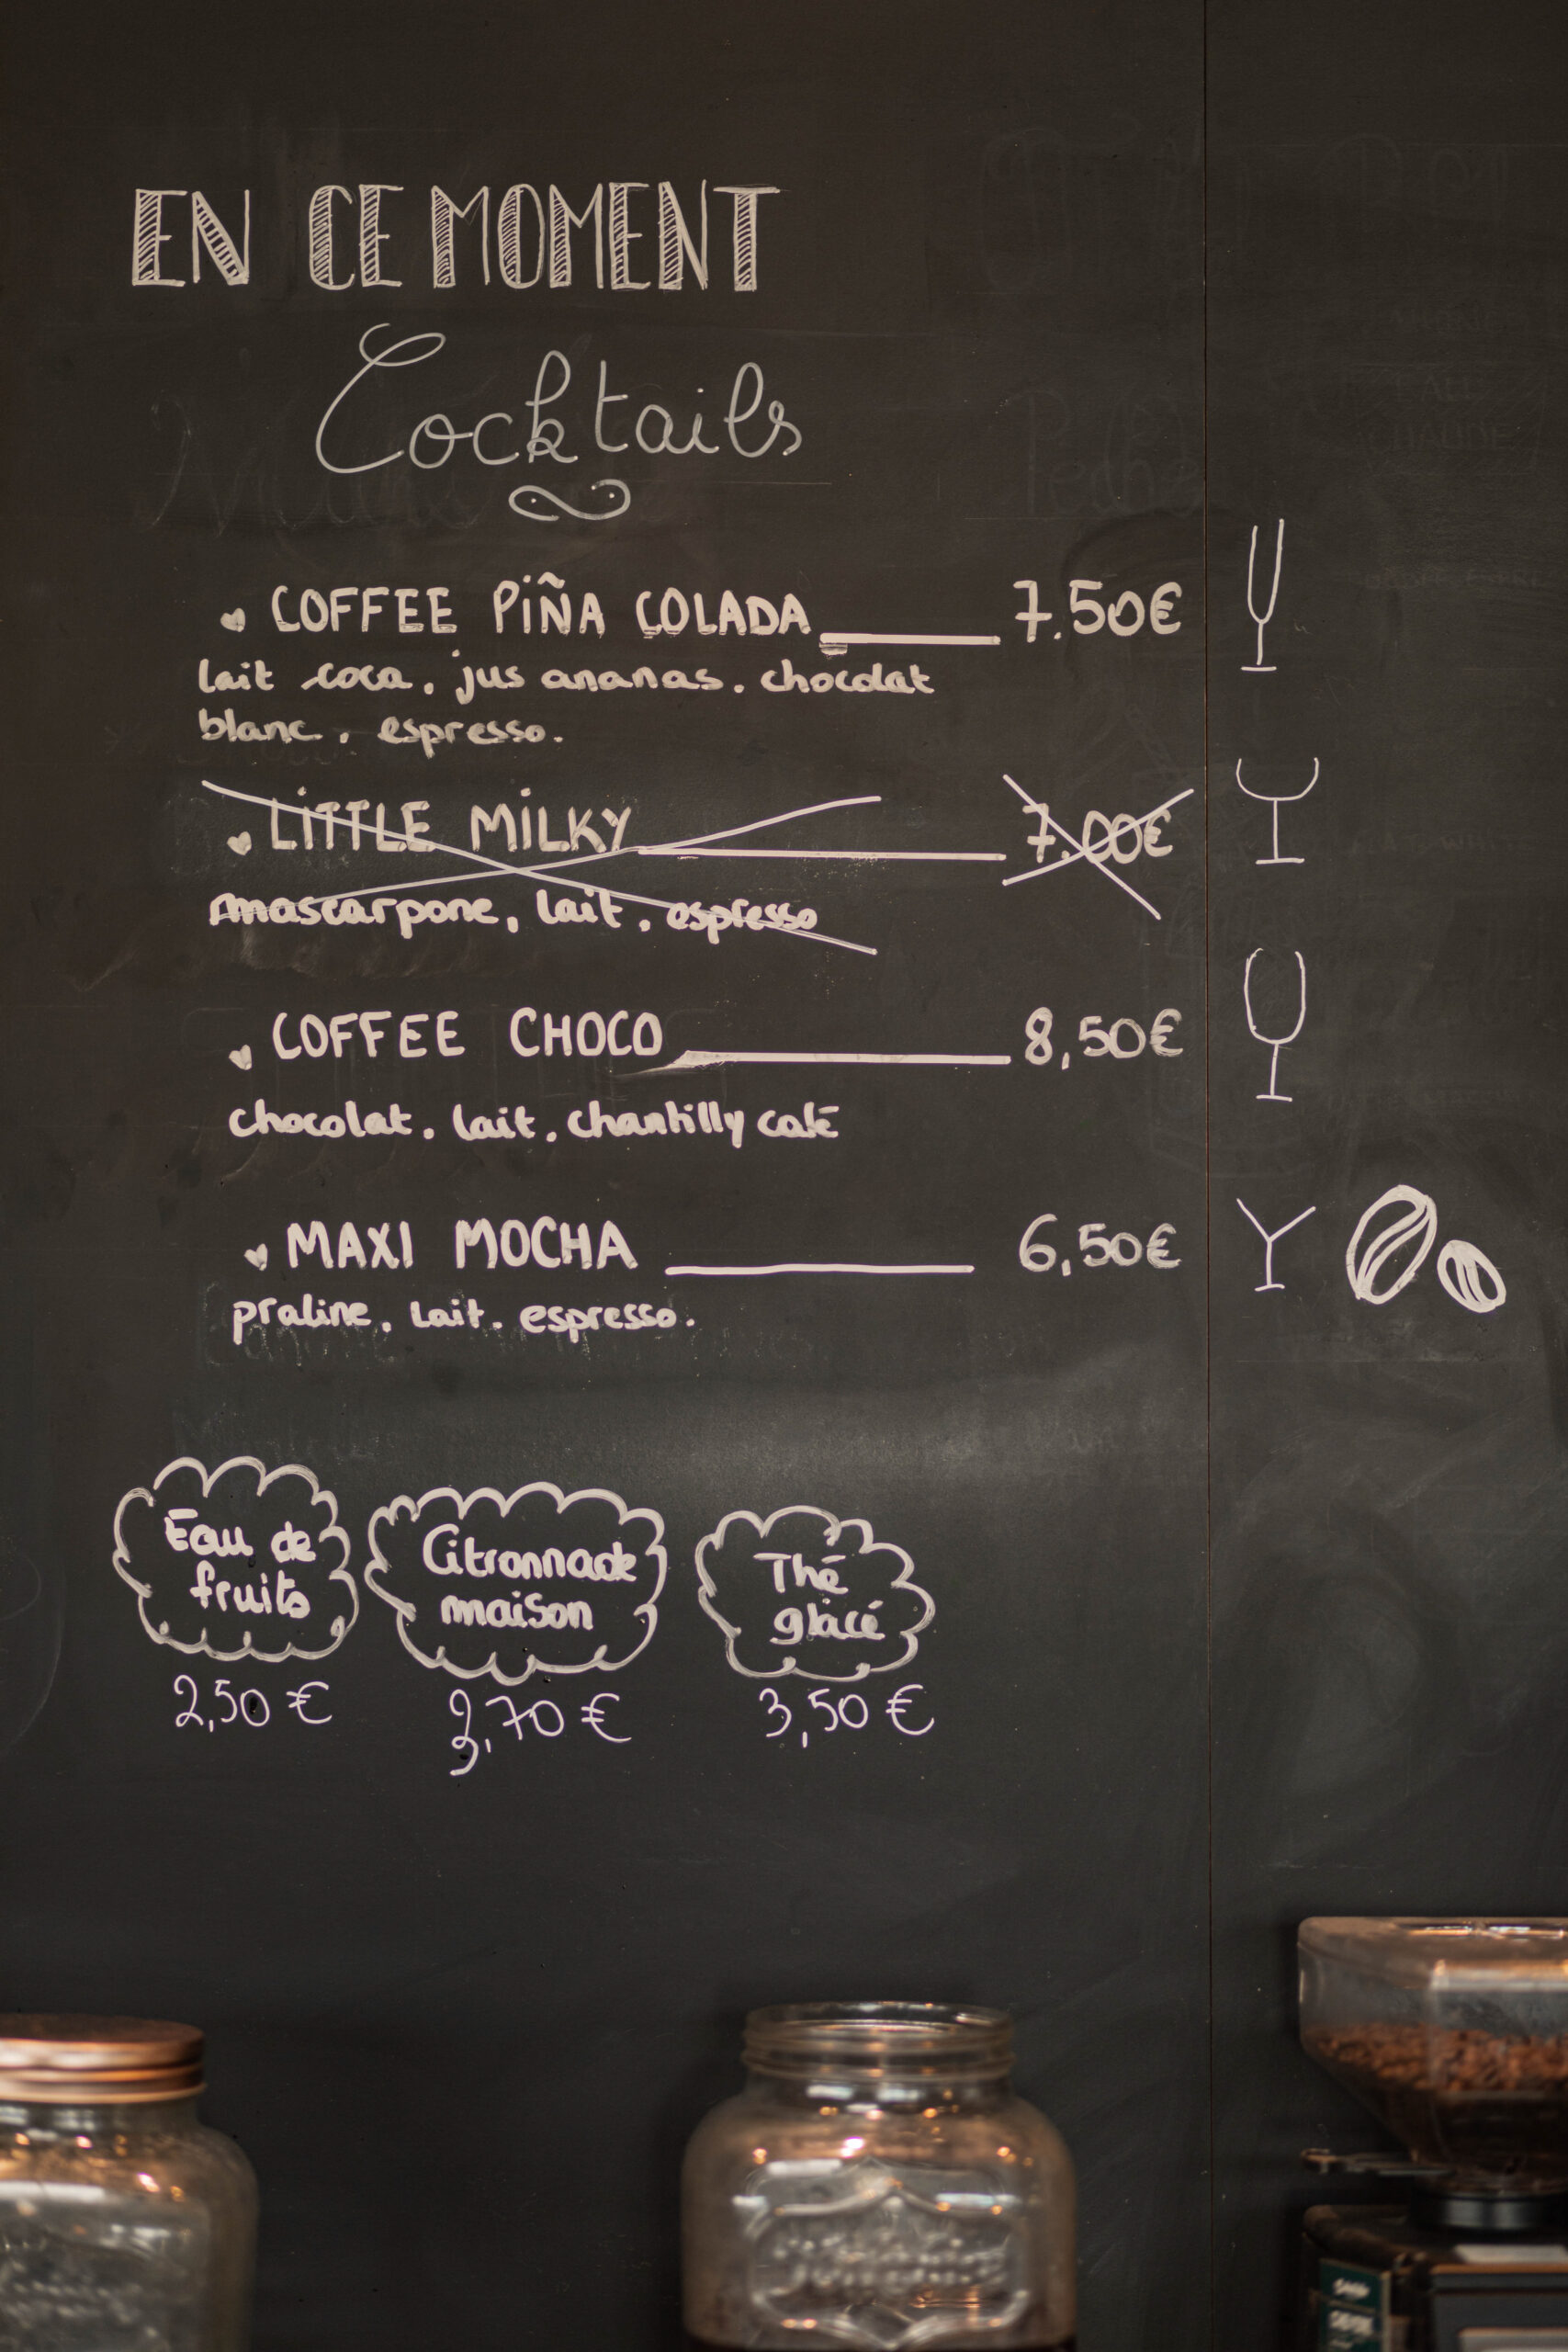 EN CE MOMENT
Cocktails
COFFEE PIÑA COLADA 7.50€
lait coca, jus ananas, chocolat
blanc, espresso.
LITTLE MILKY 7.00€
mascarpone, lait, espresso
COFFEE CHOCO 8,50€
chocolat, lait, chantilly café
MAXI MOCHA 6,50€
praline, lait, espresso.
Eau de
fruits
2,50 €
Citronnade
maison
3,70 €
Thé
glacé
3,50 €